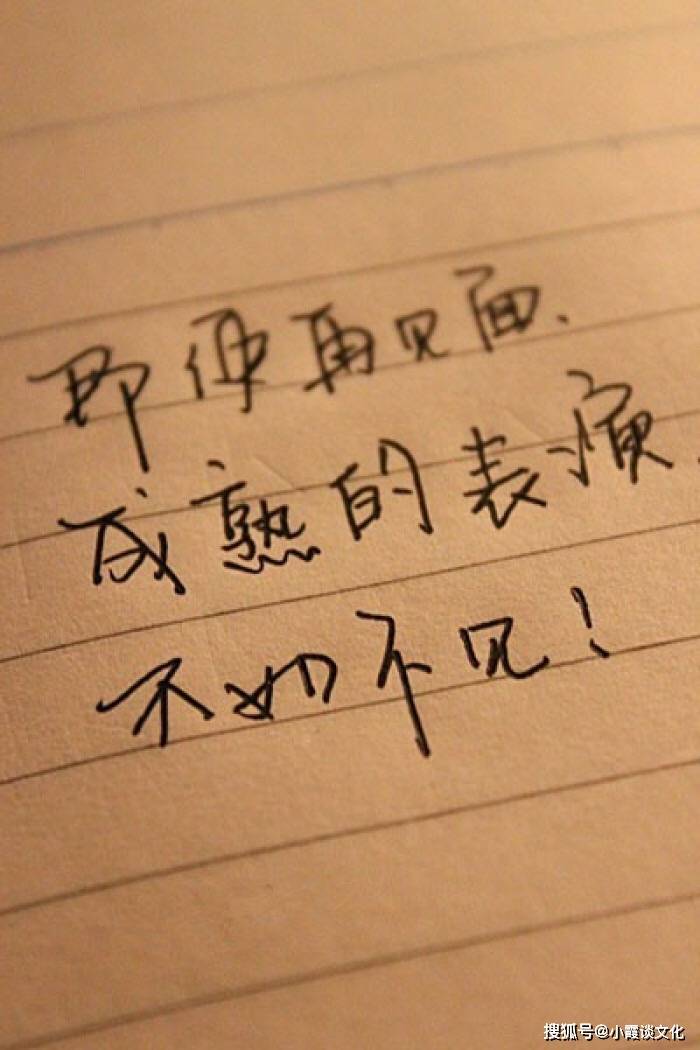 即使再见面、
成熟的表演，
不如不见！
搜狐号@小霞谈文化